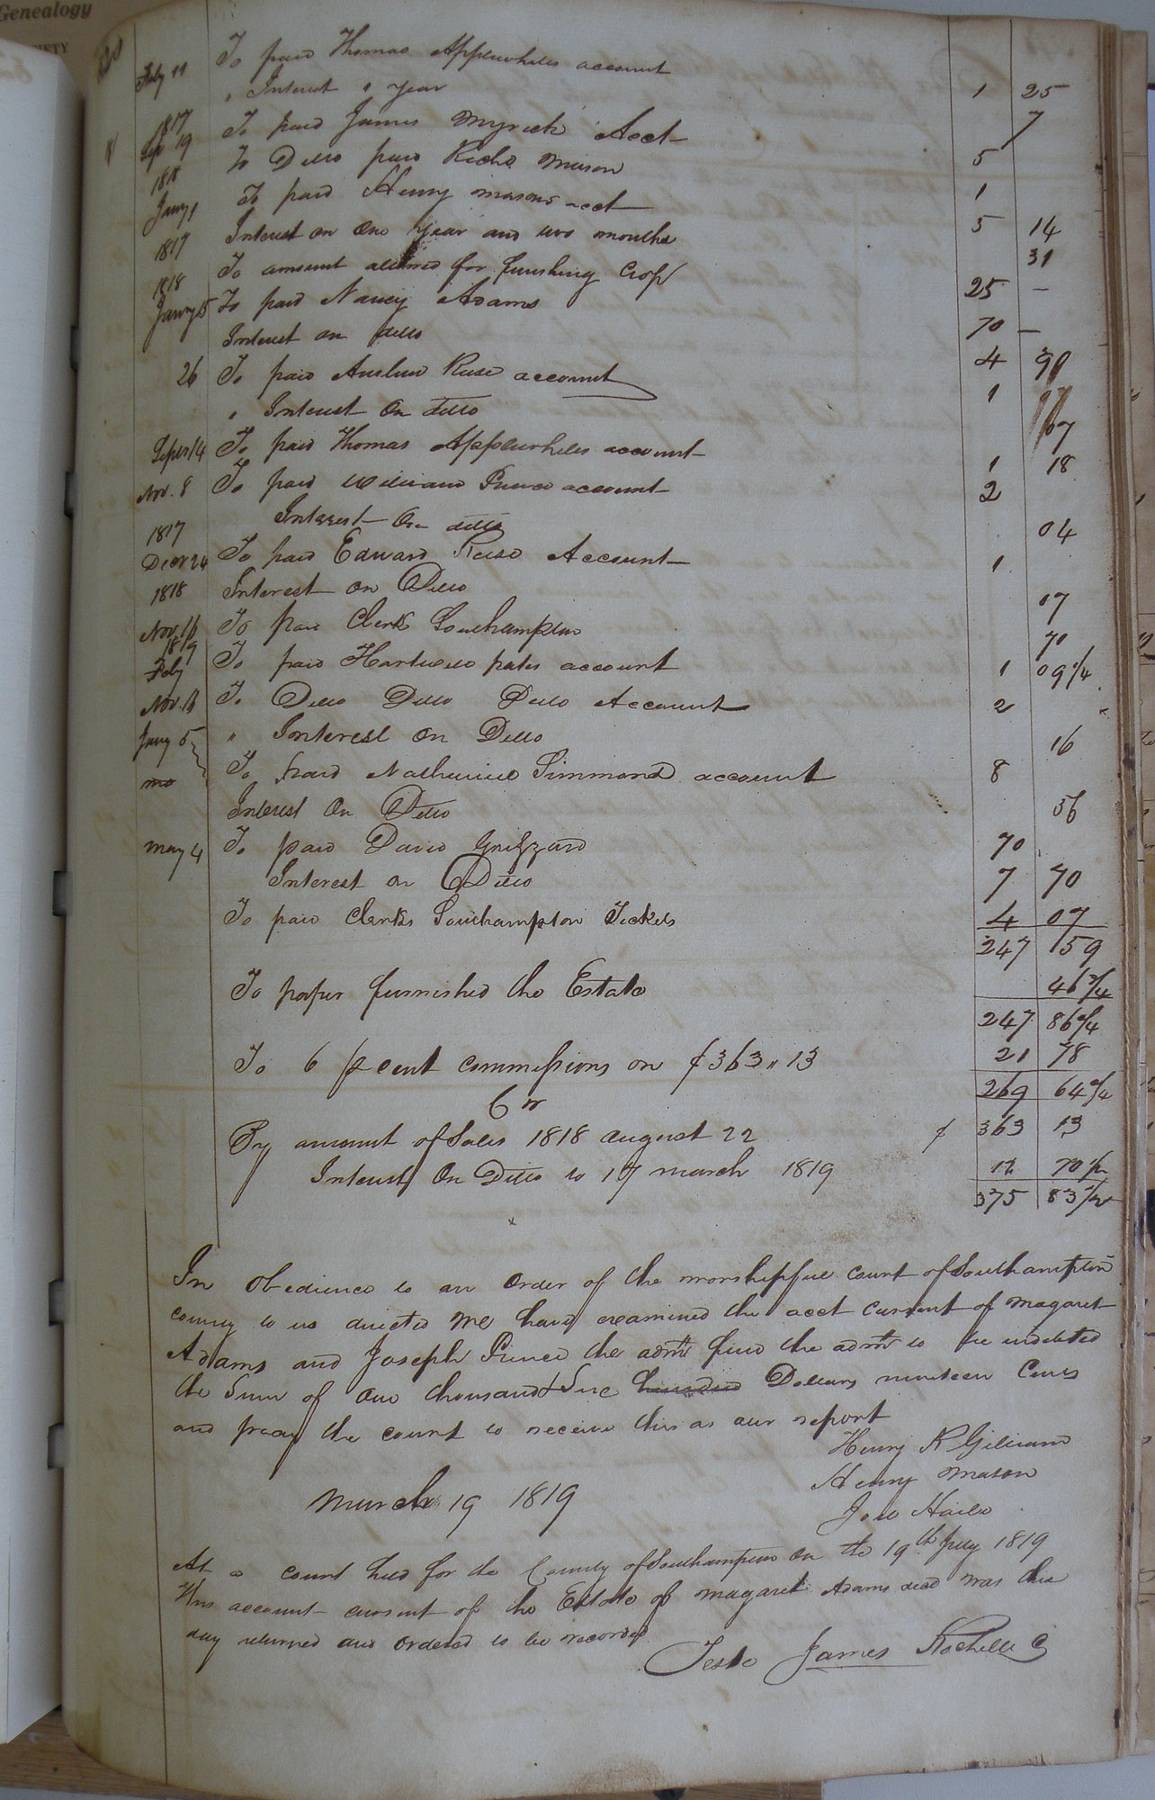 Genealogy
To paid Thomas Applewhites account
July 11 " Interest 1 year 1 25
1817 To paid James Myrick Acct 7
Sep 19 To Ditto paid Richd Mason 5
1818 To paid Henry masons acct 1
Jany 1 Interest on One year and two months 5 14
1817 To amount allowed for finishing Crop 31
1818 Jany 15 To paid Nancy Adams 25 —
Interest on ditto 70 —
26 To paid Reese account 4 90
" Interest On ditto 1 17
Septr 14 To paid Thomas Applewhites account 67
Nov. 8 To paid William Pierce account 1 18
Interest On ditto 2
1817 Decr 24 To paid Edward Reese Account 04
1818 Interest on Ditto 1
Nov. 16 To paid Clerk Southampton 07
1819 Feby To paid Hartwell account 70
Nov. 16 To Ditto Ditto Ditto Account 1 09 1/4
Jany 5 " Interest On Ditto 2
mo To paid Nathaniel Simmond account 8 16
Interest On Ditto 56
may 4 To paid David Grizzard 70
Interest on Ditto 7 70
To paid Clerks Southampton Tickets 4 07
247 59
To paper furnished the Estate 46 3/4
247 86 3/4
To 6 p cent commissions on $363 " 13 21 78
269 64 3/4
Cr
By amount of Sales 1818 august 22 $ 363 13
Interest On Ditto to 17 march 1819 12 70 1/2
375 83 1/2
In Obedience to an Order of the worshipfull court of Southampton
county to us directed We have examined the acct current of Magaret
Adams and Joseph Pierce the admr find the admr to be indebted
the Sum of One thousand & Six hundred Dollars nineteen Cents
and pray the court to receive this as our report
Henry K Gilliam
Henry Mason
March 19 1819
At a court held for the County of Southampton On the 19th July 1819
This account current of the Estate of Magaret Adams decd was this
day returned and Ordered to be recorded
Teste James Rochelle C